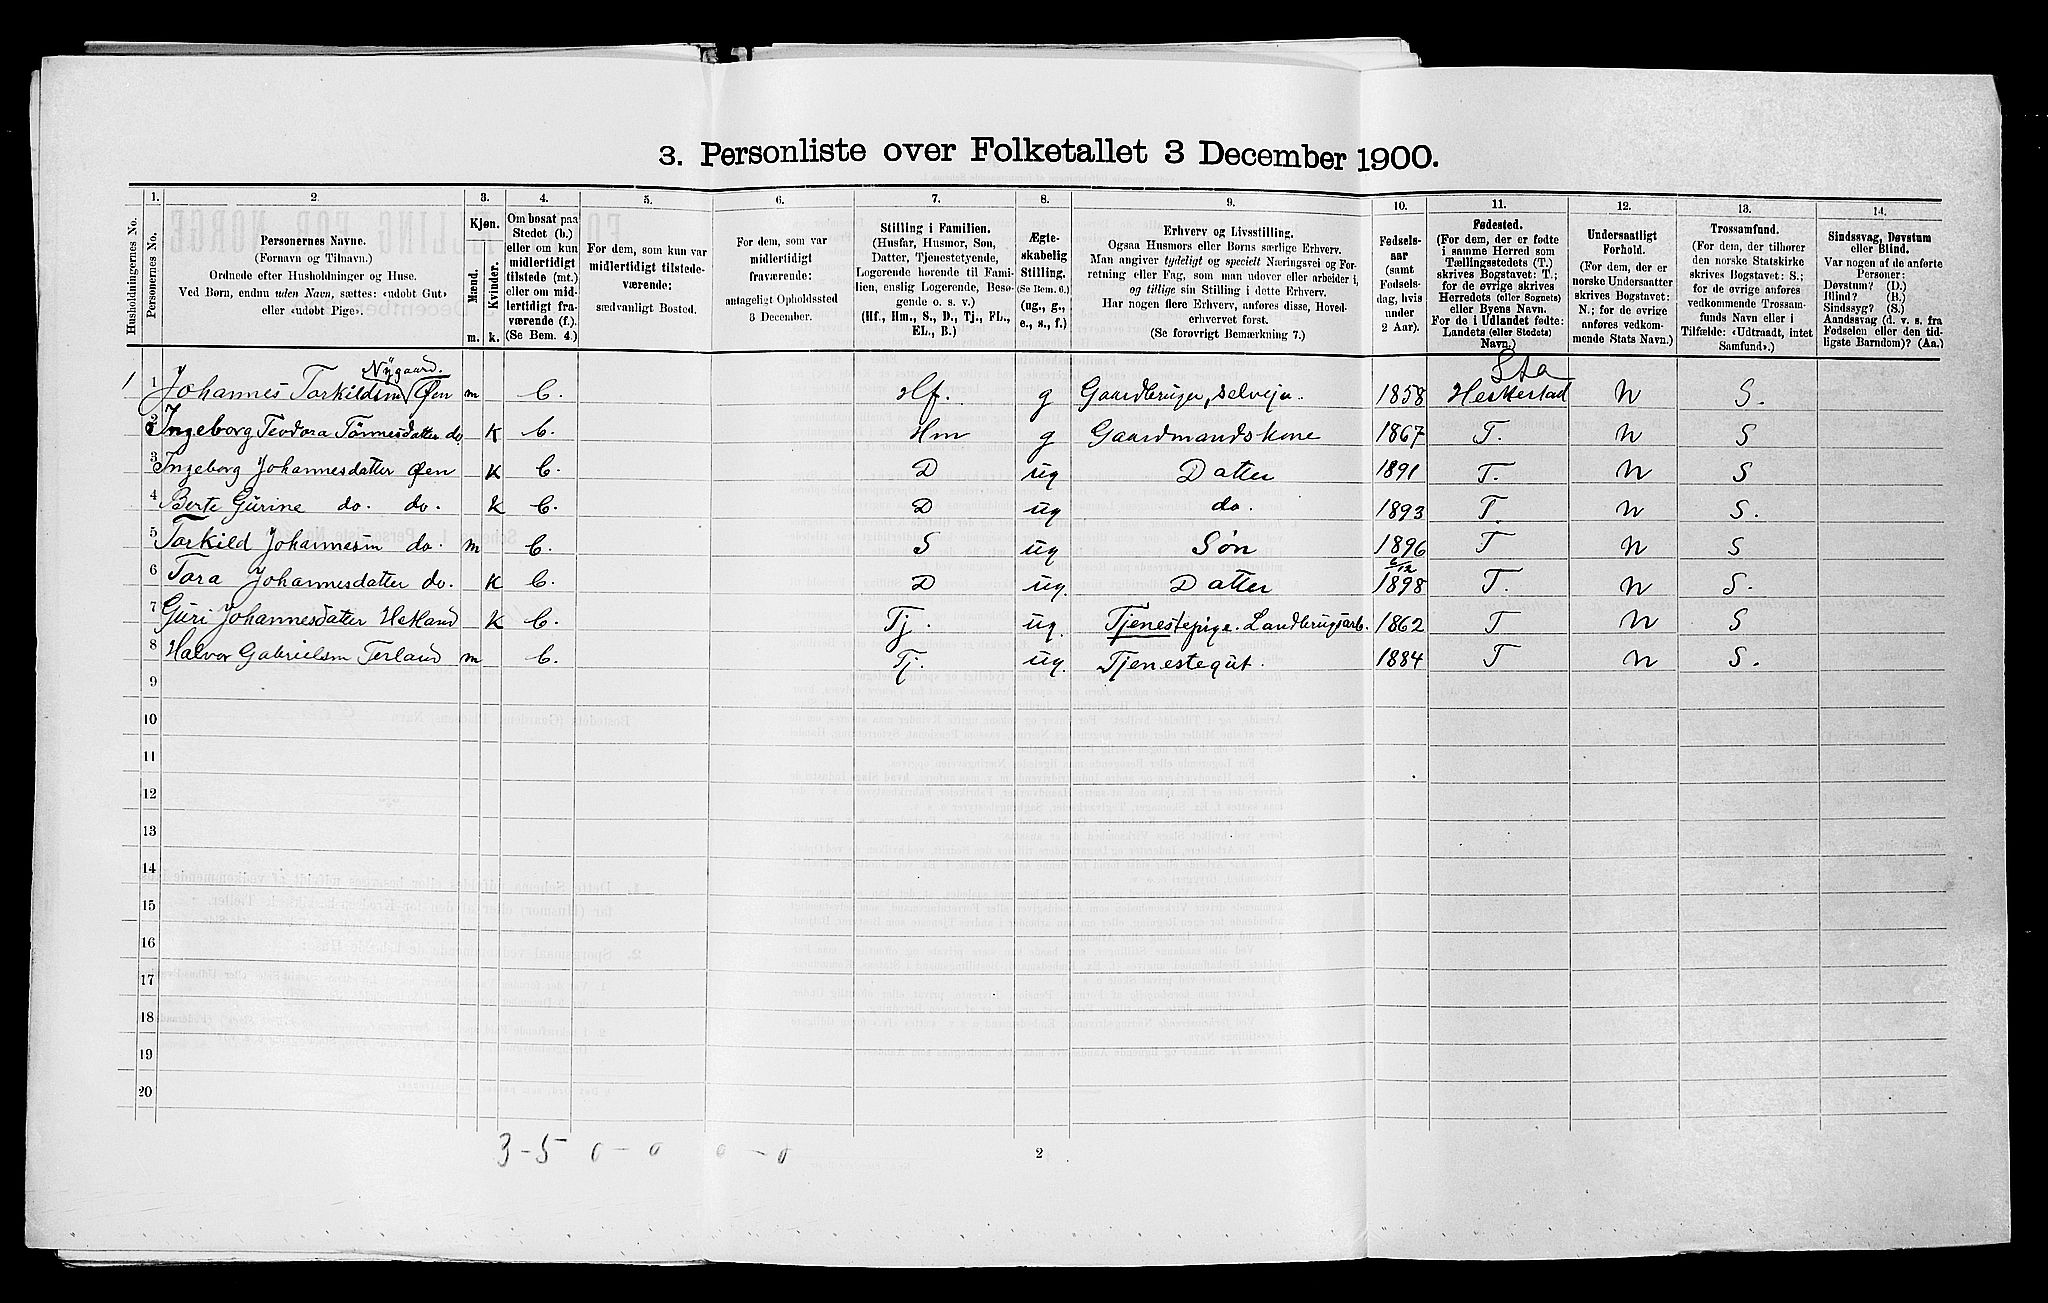 3. Personliste over Folketallet 3 December 1900.
Husholdningernes No.
1.
Personernes No.
2.
Personernes Navne.
(Fornavn og Tilnavn.)
Ordnede efter Husholdninger og Huse.
Ved Børn, endnu uden Navn, sættes: «udøbt Gut»
eller «udøbt Pige».
3.
Kjøn.
Mænd.
Kvinder.
m. k.
4.
Om bosat paa
Stedet (b.)
eller om kun
midlertidigt
tilstede (mt.)
eller om mid-
lertidigt fra-
værende (f.).
(Se Bem. 4.)
5.
For dem, som kun var
midlertidigt tilstede-
værende:
sædvanligt Bosted.
6.
For dem, som var
midlertidigt
fraværende:
antageligt Opholdssted
3 December.
7.
Stilling i Familien.
(Husfar, Husmor, Søn,
Datter, Tjenestetyende,
Logerende hørende til Fami-
lien, enslig Logerende, Besø-
gende o. s. v.)
(Hf., Hm., S., D., Tj., FL.,
EL., B.)
8.
Ægte-
skabelig
Stilling.
(Se Bem. 6.)
(ug., g.,
e., s., f.)
9.
Erhverv og Livsstilling.
Ogsaa Husmors eller Børns særlige Erhverv.
Man angiver tydeligt og specielt Næringsvei og For-
retning eller Fag, som man udover eller arbeider i,
og tillige sin Stilling i dette Erhverv.
Har nogen flere Erhverv, anføres disse, Hoved-
erhvervet først.
(Se forøvrigt Bemærkning 7.)
10.
Fødsels-
aar
(samt
Fødsels-
dag, hvis
under
2 Aar).
11.
Fødested.
(For dem, der er fødte
i samme Herred som
Tællingsstedets (T.)
skrives Bogstavet: T.;
for de øvrige skrives
Herredets (eller Sognets)
eller Byens Navn.
For de i Udlandet fødte:
Landets (eller Stedets)
Navn.)
12.
Undersaatligt
Forhold.
(For dem, der er
norske Undersaatter
skrives Bogstavet:
N.; for de øvrige
anføres vedkom-
mende Stats Navn.)
13.
Trossamfund.
(For dem, der tilhører
den norske Statskirke
skrives Bogstavet: S.;
for de øvrige anføres
vedkommende Trossam-
funds Navn eller i
Tilfælde: «Udtraadt, intet
Samfund».)
14.
Sindssvag, Døvstum
eller Blind.
Var nogen af de anførte
Personer:
Døvstum? (D.)
Blind? (B.)
Sindssyg? (S.)
Aandssvag (d. v. s. fra
Fødselen eller den tid-
ligste Barndom)? (Aa.)
Nygaard. Sta
1 1 Johannes Torkildsen (Øen m b. Hf. g Gaardbruger, selveier. 1858 Heskestad N S.
2 Ingeborg Teodora Tønnesdatter do K b. Hm g Gaardmandskone 1867 T. N S
3 Ingeborg Johannesdatter Øen K b. D ug Datter 1891 T. N S
4 Berte Gurine do. do. K b. D ug do. 1893 T. N S.
5 Torkild Johannesen do. m b. S ug Søn 1896 T N S
6/12
6 Tora Johannesdatter do. K b. D ug. Datter 1898 T. N S.
7 Guri Johannesdatter Hetland K b. Tj. ug. Tjenestepige. Landbrugsarb. 1862 T N S
8 Halvor Gabrielsen Terland m b. Tj. ug. Tjenestegut. 1884 T N S.
9
10
11
12
13
14
15
16
17
18
19
20
3-5 0-0 0-0
2